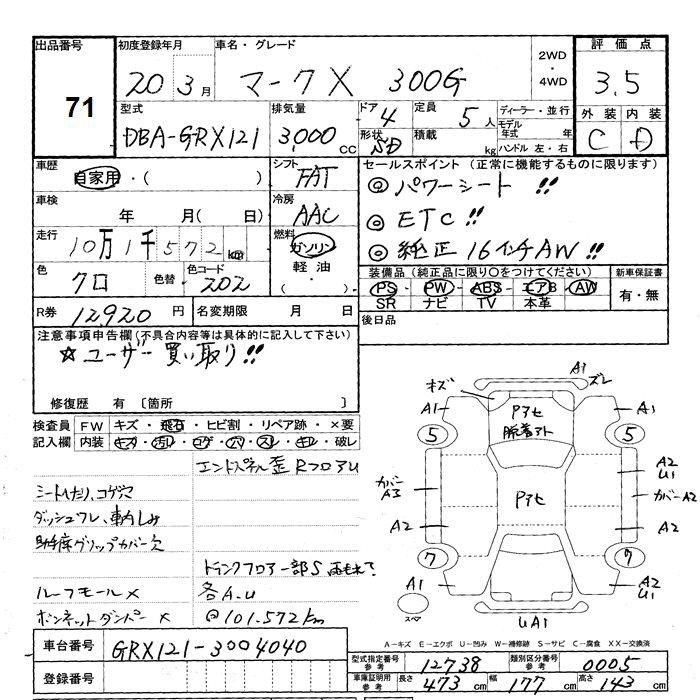 出品番号 初度登録年月 車名・グレード 2WD・4WD 評価点
71 20 3月 マークX 300G 3.5
型式 排気量 ドア 4 定員 5人 ディーラー・並行 外装 内装
DBA-GRX121 3,000cc 形状 SD 積載 kg モデル年式 年 C D
ハンドル 左・右
車歴 自家用・( ) シフト FAT セールスポイント (正常に機能するものに限ります)
◎ パワーシート !!
車検 年 月( 日) 冷房 AAC ◎ ETC !!
走行 10万1千572km 燃料 ガソリン 軽油・( ) ◎ 純正 16インチAW !!
色 クロ 色替 色コード 202 装備品 (純正品に限り○をつけてください) 新車保証書
PS・PW・ABS・エアB・AW 有・無
SR ナビ TV 本革
R券 12920円 名変期限 月 日 後日品
注意事項申告欄(不具合内容等は具体的に記入して下さい)
☆ ユーザー買い取り !!
修復歴 有 〔箇所
検査員記入欄 FW キズ・飛石・ヒビ割・リペア跡・×要
内装 キズ・汚れ・コゲ・穴・スレ・キレ・破レ
エンドパネル歪 RフロアU
シートへたり、コゲ穴
ダッシュワレ、車内しみ
助手席グリップカバー欠
トランクフロア一部S
ルーフモール× 各A.U
ボンネットダンパー× @101.572km
キズ A1 ズレ
A1 Pアセ 脱着アト A1
5 5
カバー A3 Pアセ A2 U1
カバーA2
A2 A2
7 7
A1 A2 U1
スペア UA1
A-キズ E-エクボ U-凹み W-補修跡 S-サビ C-腐食 XX-交換済
車台番号 GRX121-3004040
型式指定番号 参考 12738 類別区分番号 参考 0005
登録番号
車庫証明用 参考 長さ 473cm 幅 177cm 高さ 143cm